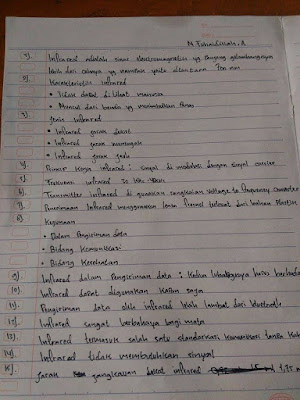 1). Infrared adalah sinar elektromagnetis yg panjang gelombangnya
lebih dari cahaya yg nampak yaitu diantara 700 nm
2). Karakteristik infrared
• Tidak dapat dilihat manusia
• Muncul dari benda yg menimbulkan panas
3). Jenis infrared
• Infrared jarak dekat
• Infrared jarak menengah
• Infrared jarak jauh
4). Prinsip kerja infrared : sinyal di modulasi dengan sinyal carrier
5). Frekuensi infrared 30 kHz
6). Transmitter infrared di gunakan rangkaian Voltage to frequency Converter
7). Penerimaan Infrared menggunakan lensa terbuat dari bahan Plastik
8). Kegunaan
• Dalam Pengiriman data
• Bidang Komunikasi
• Bidang Kesehatan
9). Infrared dalam Pengiriman data : Kedua harus berhada
10). Infrared dapat digunakan kapan saja
11). Pengiriman data oleh infrared lebih lambat dari bluetooth
12). Infrared sangat berbahaya bagi mata
13). Infrared termasuk salah satu standarisasi komunikasi tanpa kabel
14). Infrared tidak membutuhkan sinyal
15). Jarak jangkauan dekat infrared